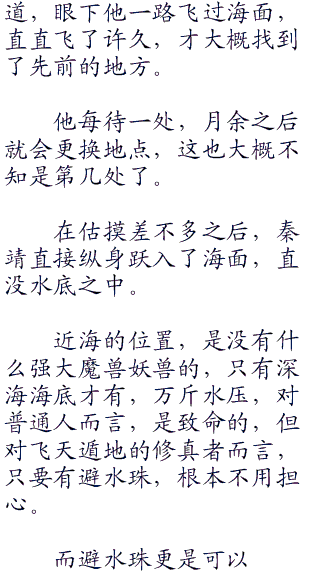 道，眼下他一路飞过海面，
直直飞了许久，才大概找到
了先前的地方。
他每待一处，月余之后
就会更换地点，这也大概不
知是第几处了。
在估摸差不多之后，秦
靖直接纵身跃入了海面，直
没水底之中。
近海的位置，是没有什
么强大魔兽妖兽的，只有深
海海底才有，万斤水压，对
普通人而言，是致命的，但
对飞天遁地的修真者而言，
只要有避水珠，根本不用担
心。
而避水珠更是可以